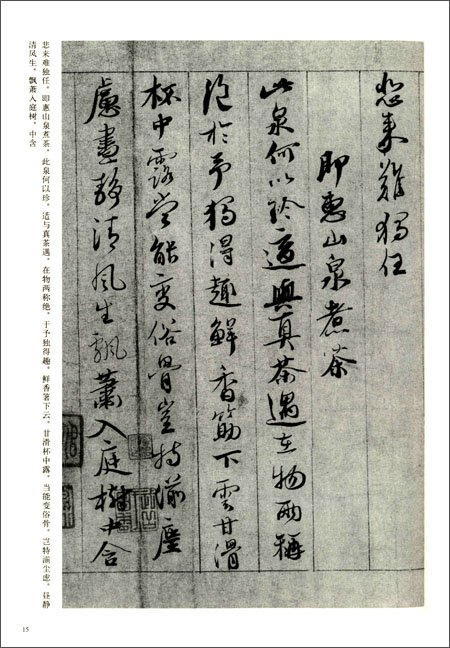 悲來難獨任
即惠山泉煮茶
此泉何以珍適與真茶遇在物兩稱
絕於予獨得趣鮮香筯下雲甘滑
杯中露當能變俗骨豈特湔塵
慮晝靜清風生飄蕭入庭樹中含
悲来难独任。即惠山泉煮茶。此泉何以珍，适与真茶遇。在物两称绝，于予独得趣。鲜香箸下云，甘滑杯中露。当能变俗骨，岂特湔尘虑。昼静
清风生，飘萧入庭树。中含
15